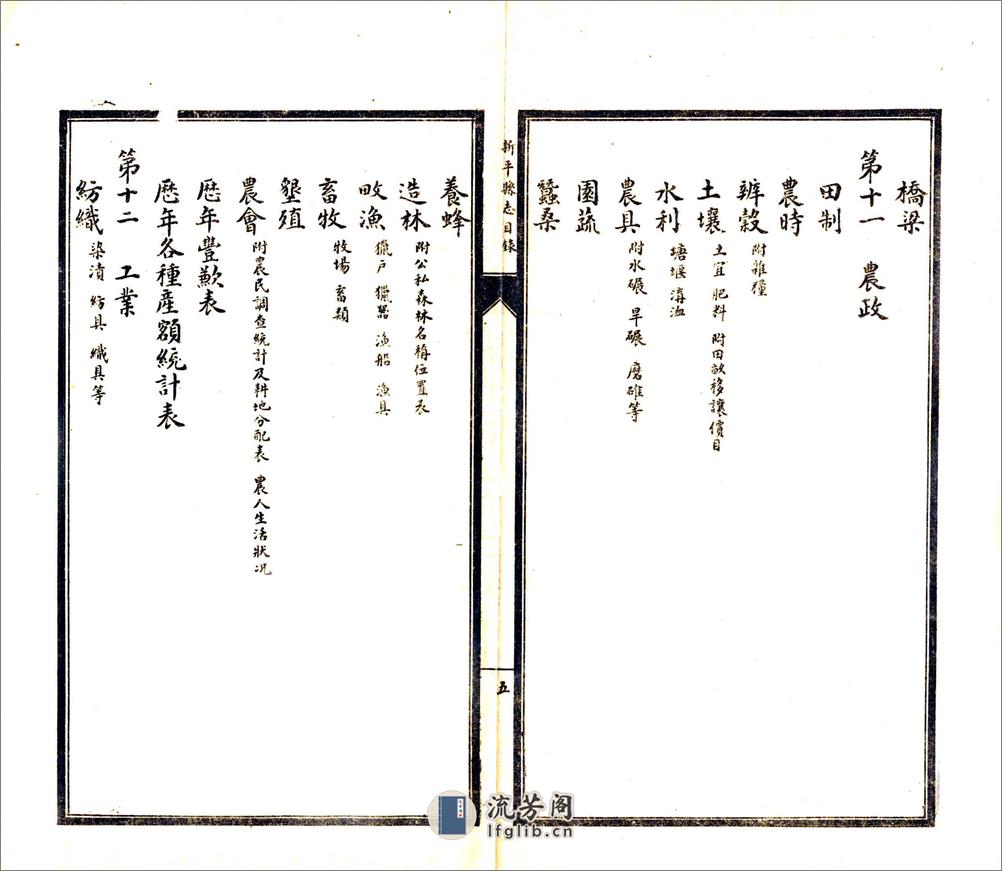 橋梁
第十一 農政
田制
農時
辨穀 附雜糧
土壤 土宜 肥料 附田畝移讓價目
水利 塘堰 溝洫
農具 附水碾 旱碾 磨碓等
園蔬
蠶桑
新平縣志目錄
五
養蜂
造林 附公私森林名稱位置表
畋漁 獵戶 獵器 漁船 漁具
畜牧 牧場 畜類
墾殖
農會 附農民調查統計及耕地分配表 農人生活狀况
歷年豐歉表
歷年各種產額統計表
第十二 工業
紡織 染漬 紡具 織具等
流芳阁
lfglib.cn